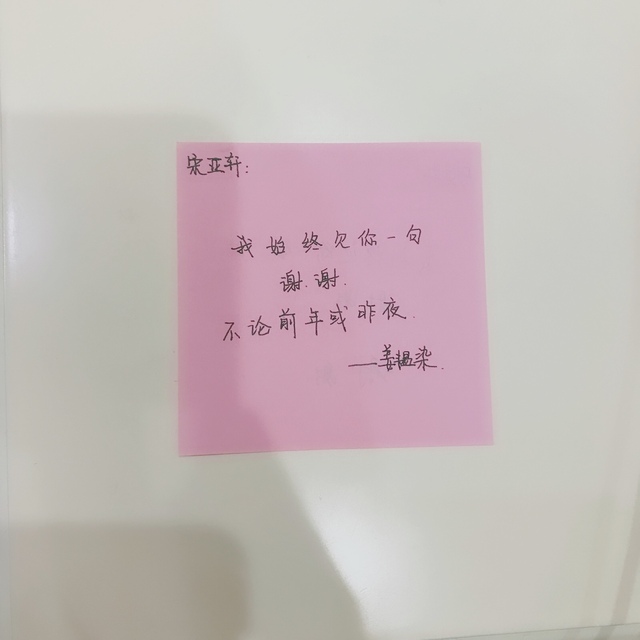 宋亚轩:
我始终欠你一句
谢.谢.
不论前年或昨夜.
——姜温染.